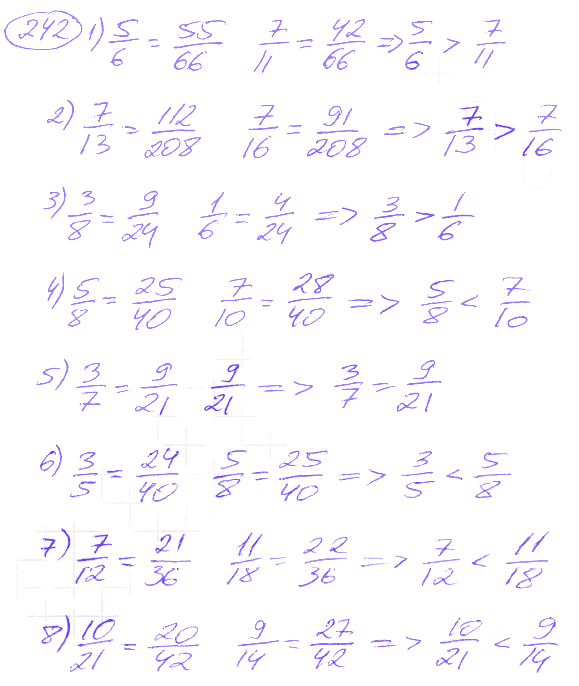 242 1) 5/6 = 55/66 7/11 = 42/66 => 5/6 > 7/11
2) 7/13 = 112/208 7/16 = 91/208 => 7/13 > 7/16
3) 3/8 = 9/24 1/6 = 4/24 => 3/8 > 1/6
4) 5/8 = 25/40 7/10 = 28/40 => 5/8 < 7/10
5) 3/7 = 9/21 9/21 => 3/7 = 9/21
6) 3/5 = 24/40 5/8 = 25/40 => 3/5 < 5/8
7) 7/12 = 21/36 11/18 = 22/36 => 7/12 < 11/18
8) 10/21 = 20/42 9/14 = 27/42 => 10/21 < 9/14